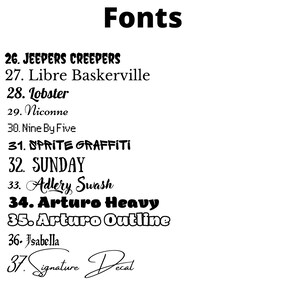 Fonts
26. JEEPERS CREEPERS
27. Libre Baskerville
28. Lobster
29. Niconne
30. Nine By Five
31. SPRITE GRAFFITI
32. SUNDAY
33. Adlery Swash
34. Arturo Heavy
35. Arturo Outline
36. Isabella
37. Signature Decal